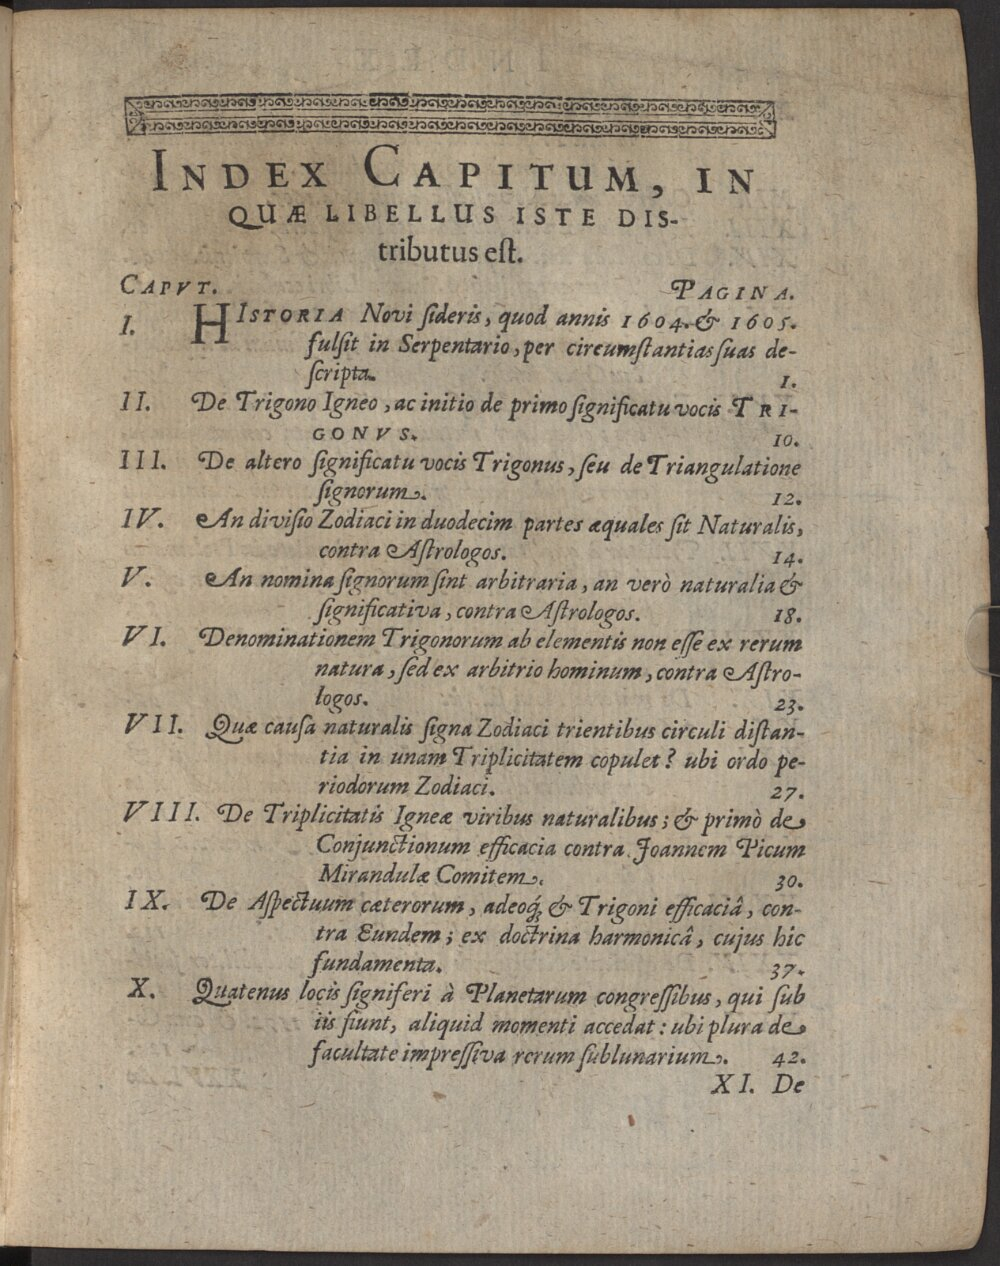 INDEX CAPITUM, IN
QUÆ LIBELLUS ISTE DIS-
tributus eſt.
CAPVT. PAGINA.
I. HISTORIA Novi ſideris, quod annis 1604. & 1605.
fulſit in Serpentario, per circumſtantias ſuas de-
ſcripta. 1.
II. De Trigono Igneo, ac initio de primo ſignificatu vocis TRI-
GONVS. 10.
III. De altero ſignificatu vocis Trigonus, ſeu de Triangulatione
ſignorum. 12.
IV. An diviſio Zodiaci in duodecim partes æquales ſit Naturalis,
contra Aſtrologos. 14.
V. An nomina ſignorum ſint arbitraria, an verò naturalia &
ſignificativa, contra Aſtrologos. 18.
VI. Denominationem Trigonorum ab elementis non eſſe ex rerum
natura, ſed ex arbitrio hominum, contra Aſtro-
logos. 23.
VII. Quæ cauſa naturalis ſigna Zodiaci trientibus circuli diſtan-
tia in unam Triplicitatem copulet? ubi ordo pe-
riodorum Zodiaci. 27.
VIII. De Triplicitatis Igneæ viribus naturalibus; & primò de
Conjunctionum efficacia contra Joannem Picum
Mirandulæ Comitem. 30.
IX. De Aſpectuum cæterorum, adeoq́; & Trigoni efficaciâ, con-
tra Eundem; ex doctrina harmonicâ, cujus hîc
fundamenta. 37.
X. Quatenus locis ſigniferi à Planetarum congreſſibus, qui ſub
iis fiunt, aliquid momenti accedat: ubi plura de
facultate impreſſiva rerum ſublunarium. 42.
XI. De